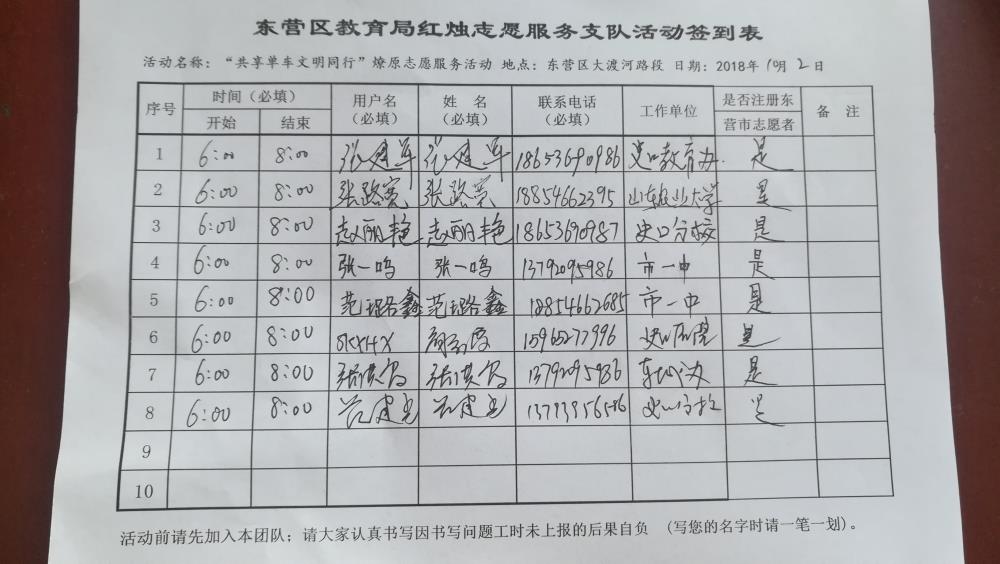 东营区教育局红烛志愿服务支队活动签到表
活动名称：“共享单车文明同行”燎原志愿服务活动 地点：东营区大渡河路段 日期：2018年10月2日
序号 时间（必填） 用户名（必填） 姓 名（必填） 联系电话（必填） 工作单位 是否注册东营市志愿者 备 注
开始 结束
1 6:00 8:00 张建军 张建军 18653690986 史口教育办 是
2 6:00 8:00 张路宾 张路宾 18854662395 山东农业大学 是
3 6:00 8:00 赵丽艳 赵丽艳 18653690987 史口分校 是
4 6:00 8:00 张一鸣 张一鸣 13792095986 市一中 是
5 6:00 8:00 范璐鑫 范璐鑫 18854662685 市一中 是
6 6:00 8:00 15965277996 是
7 6:00 8:00 13792095986 是
8 6:00 8:00 是
9
10
活动前请先加入本团队；请大家认真书写因书写问题工时未上报的后果自负 （写您的名字时请一笔一划）。